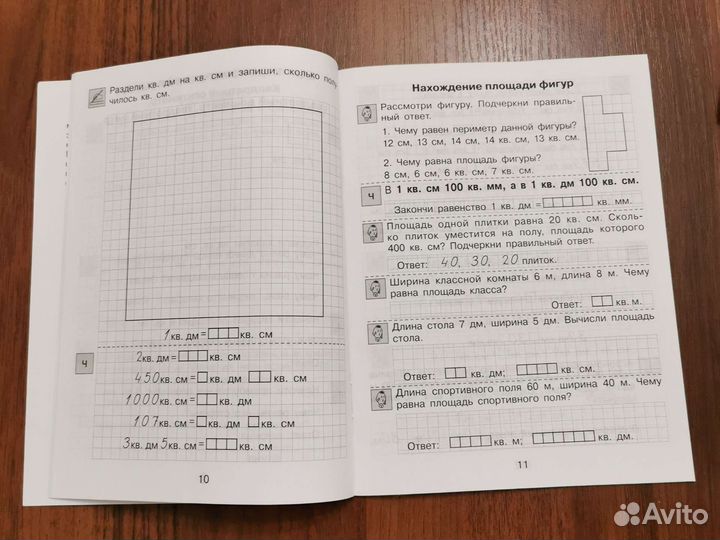 Раздели кв. дм на кв. см и запиши, сколько полу-
чилось кв. см.
1кв. дм = кв. см
Ч
2кв. дм = кв. см
450кв. см = кв. дм кв. см
1000кв. см = кв. дм
107кв. см = кв. дм кв. см
3кв. дм 5кв. см = кв. см
10
Нахождение площади фигур
Рассмотри фигуру. Подчеркни правиль-
ный ответ.
1. Чему равен периметр данной фигуры?
12 см, 13 см, 14 см, 14 кв. см, 13 кв. см.
2. Чему равна площадь фигуры?
8 см, 6 см, 6 кв. см, 7 кв. см.
Ч
В 1 кв. см 100 кв. мм, а в 1 кв. дм 100 кв. см.
Закончи равенство 1 кв. дм = кв. мм.
Площадь одной плитки равна 20 кв. см. Сколь-
ко плиток уместится на полу, площадь которого
400 кв. см? Подчеркни правильный ответ.
Ответ: 40, 30, 20 плиток.
Ширина классной комнаты 6 м, длина 8 м. Чему
равна площадь класса?
Ответ: кв. м.
Длина стола 7 дм, ширина 5 дм. Вычисли площадь
стола.
Ответ: кв. дм; кв. см.
Длина спортивного поля 60 м, ширина 40 м. Чему
равна площадь спортивного поля?
Ответ: кв. м; кв. дм.
11
Avito